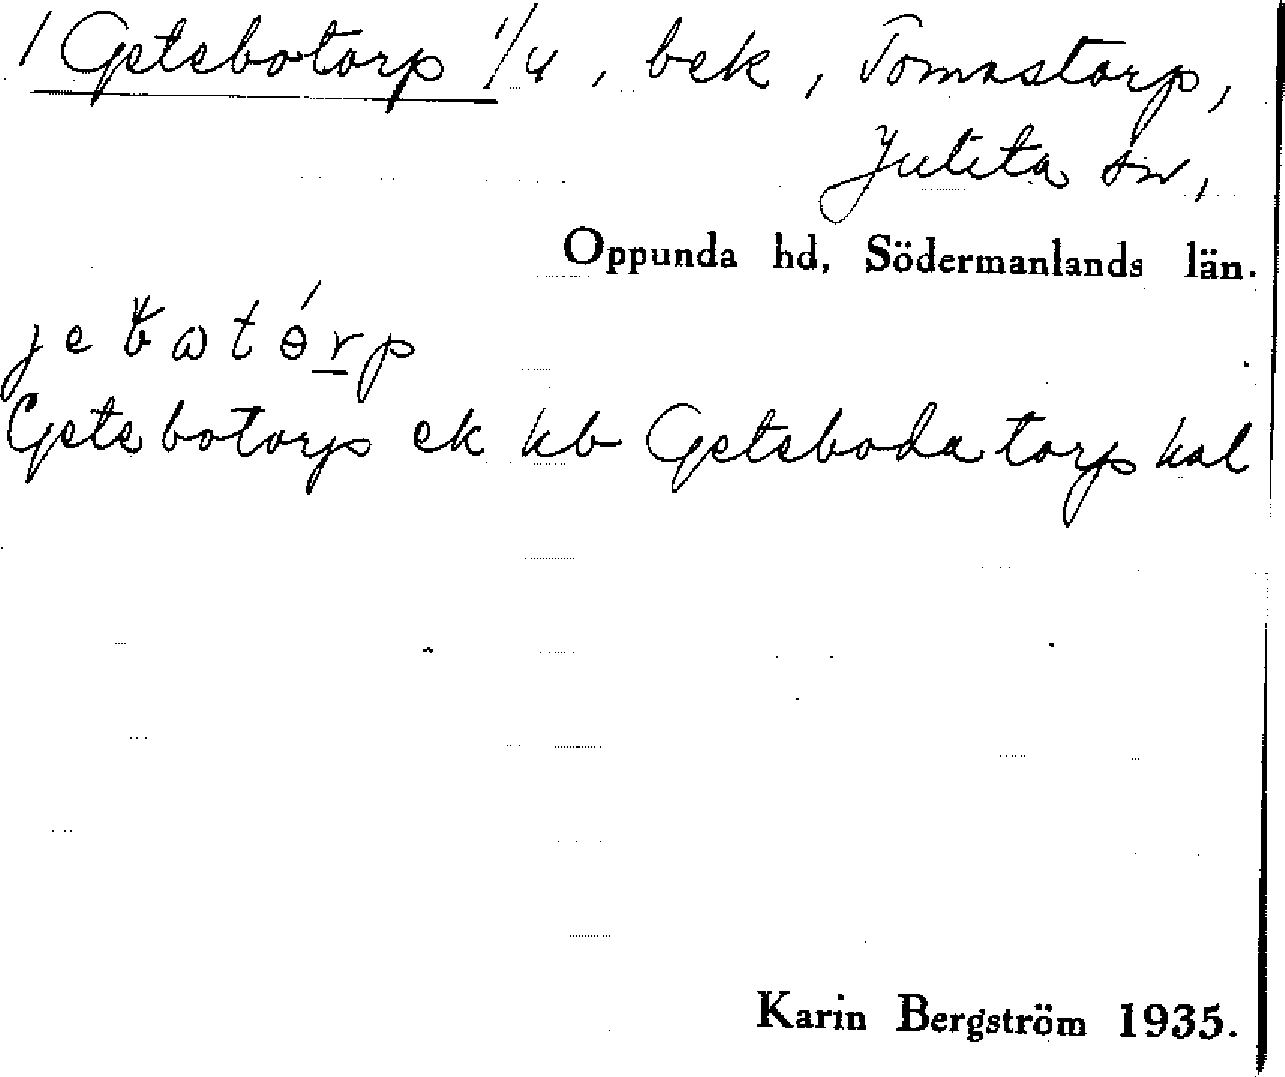 / Getsbotorp 1/4, bek, Tomastorp,
Julita sn,
Oppunda hd, Södermanlands län.
Getsbotorp ek kb Getsbodatorp kal
Karin Bergström 1935.